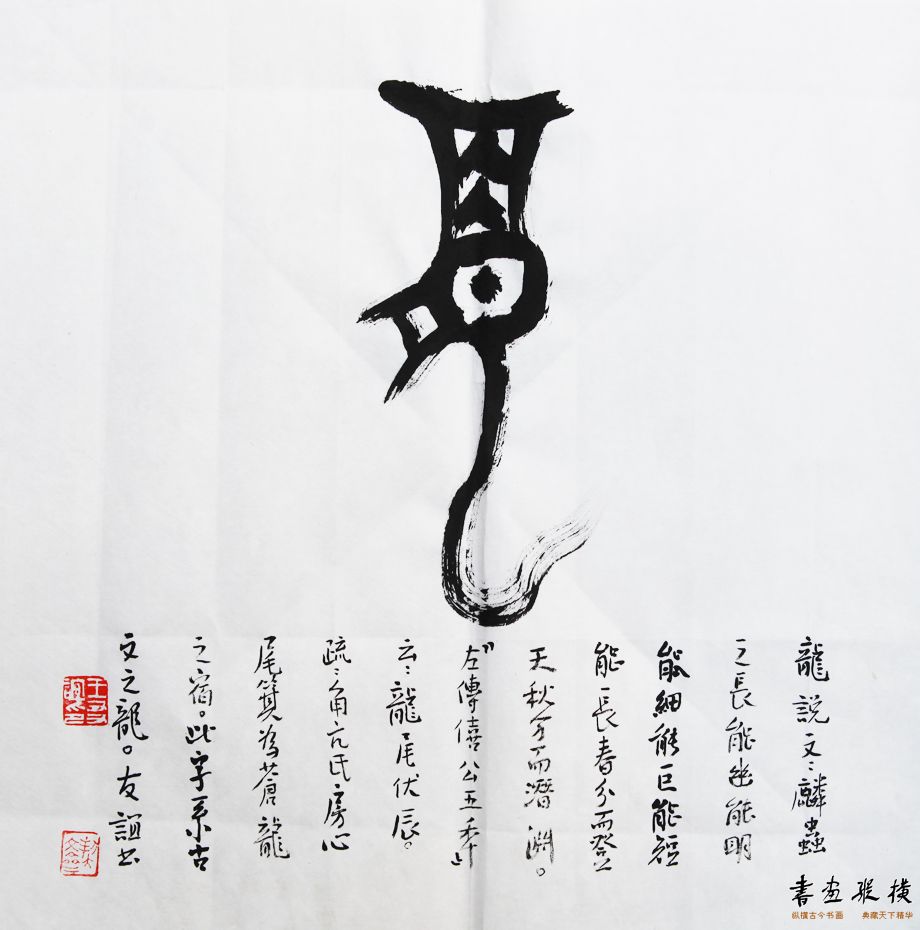 龍
龍說文：麟蟲
之長能幽能明
能細能巨能短
能長春分而登
天秋分而潛渊。
『左傳僖公五季』
云：龍尾伏辰。
疏：角亢氐房心
尾箕為蒼龍
之宿。此字系古
文之龍。友誼书
書画縱横
纵横古今书画 典藏天下精华